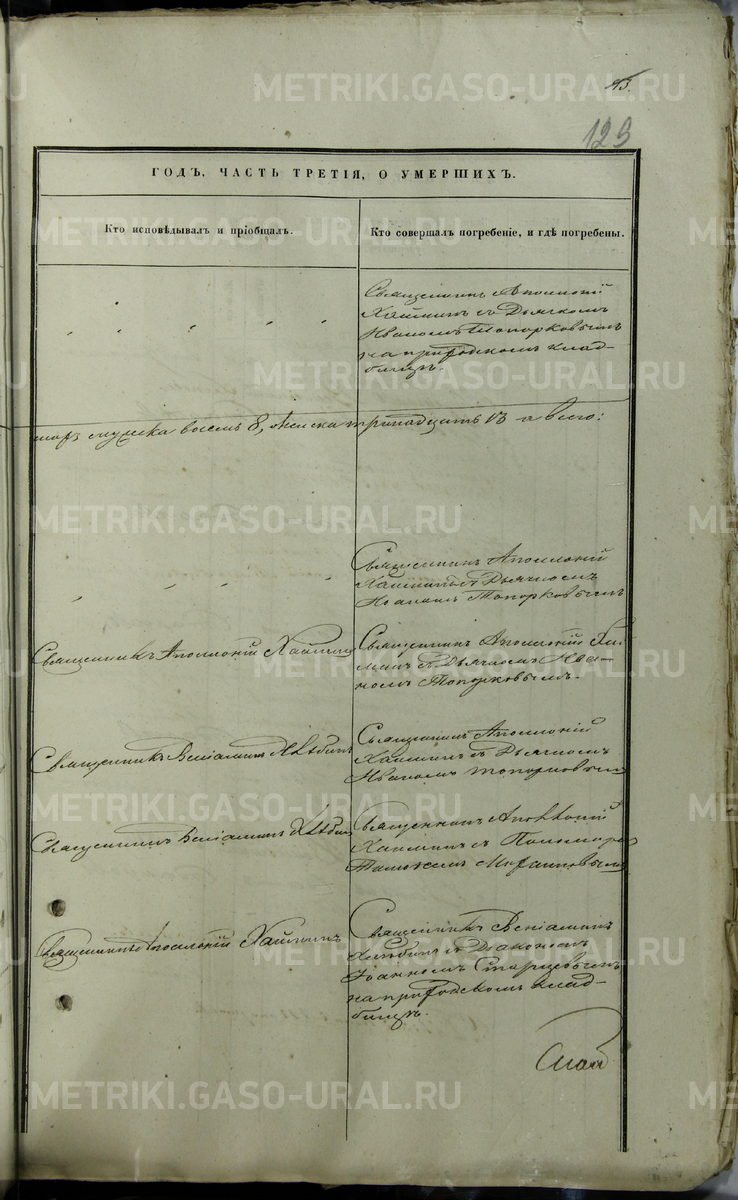 METRIKI.GASO-URAL.RU
129
ГОДЪ, ЧАСТЬ ТРЕТІЯ, О УМЕРШИХЪ.
Кто исповѣдывалъ и пріобщалъ.
Кто совершалъ погребеніе, и гдѣ погребены.
Священникъ Аполлоній
Хайминъ съ Дьячкомъ
Иваномъ Топорковымъ
на приходскомъ клад-
бищѣ.
мужеска восемь 8, женска тринадцать 13 а всего:
Священникъ Аполлоній
Хайминъ съ Дьячкомъ
Топорковымъ
Священникъ Аполлоній Хайминъ
Священникъ Аполлоній Хай-
минъ съ Дьячкомъ Ива-
номъ Топорковымъ.
Священникъ Веніаминъ Хлѣбинъ
Священникъ Аполлоній
Хайминъ съ Дьячкомъ
Иваномъ Топорковымъ
Священникъ Веніаминъ Хлѣбинъ
Священникъ Аполлоній
Хайминъ съ Пономаремъ
Священникъ Аполлоній Хайминъ
Священникъ Веніаминъ
Хлѣбинъ съ Діакономъ
Іоанномъ Старцевымъ
на приходскомъ клад-
бищѣ.